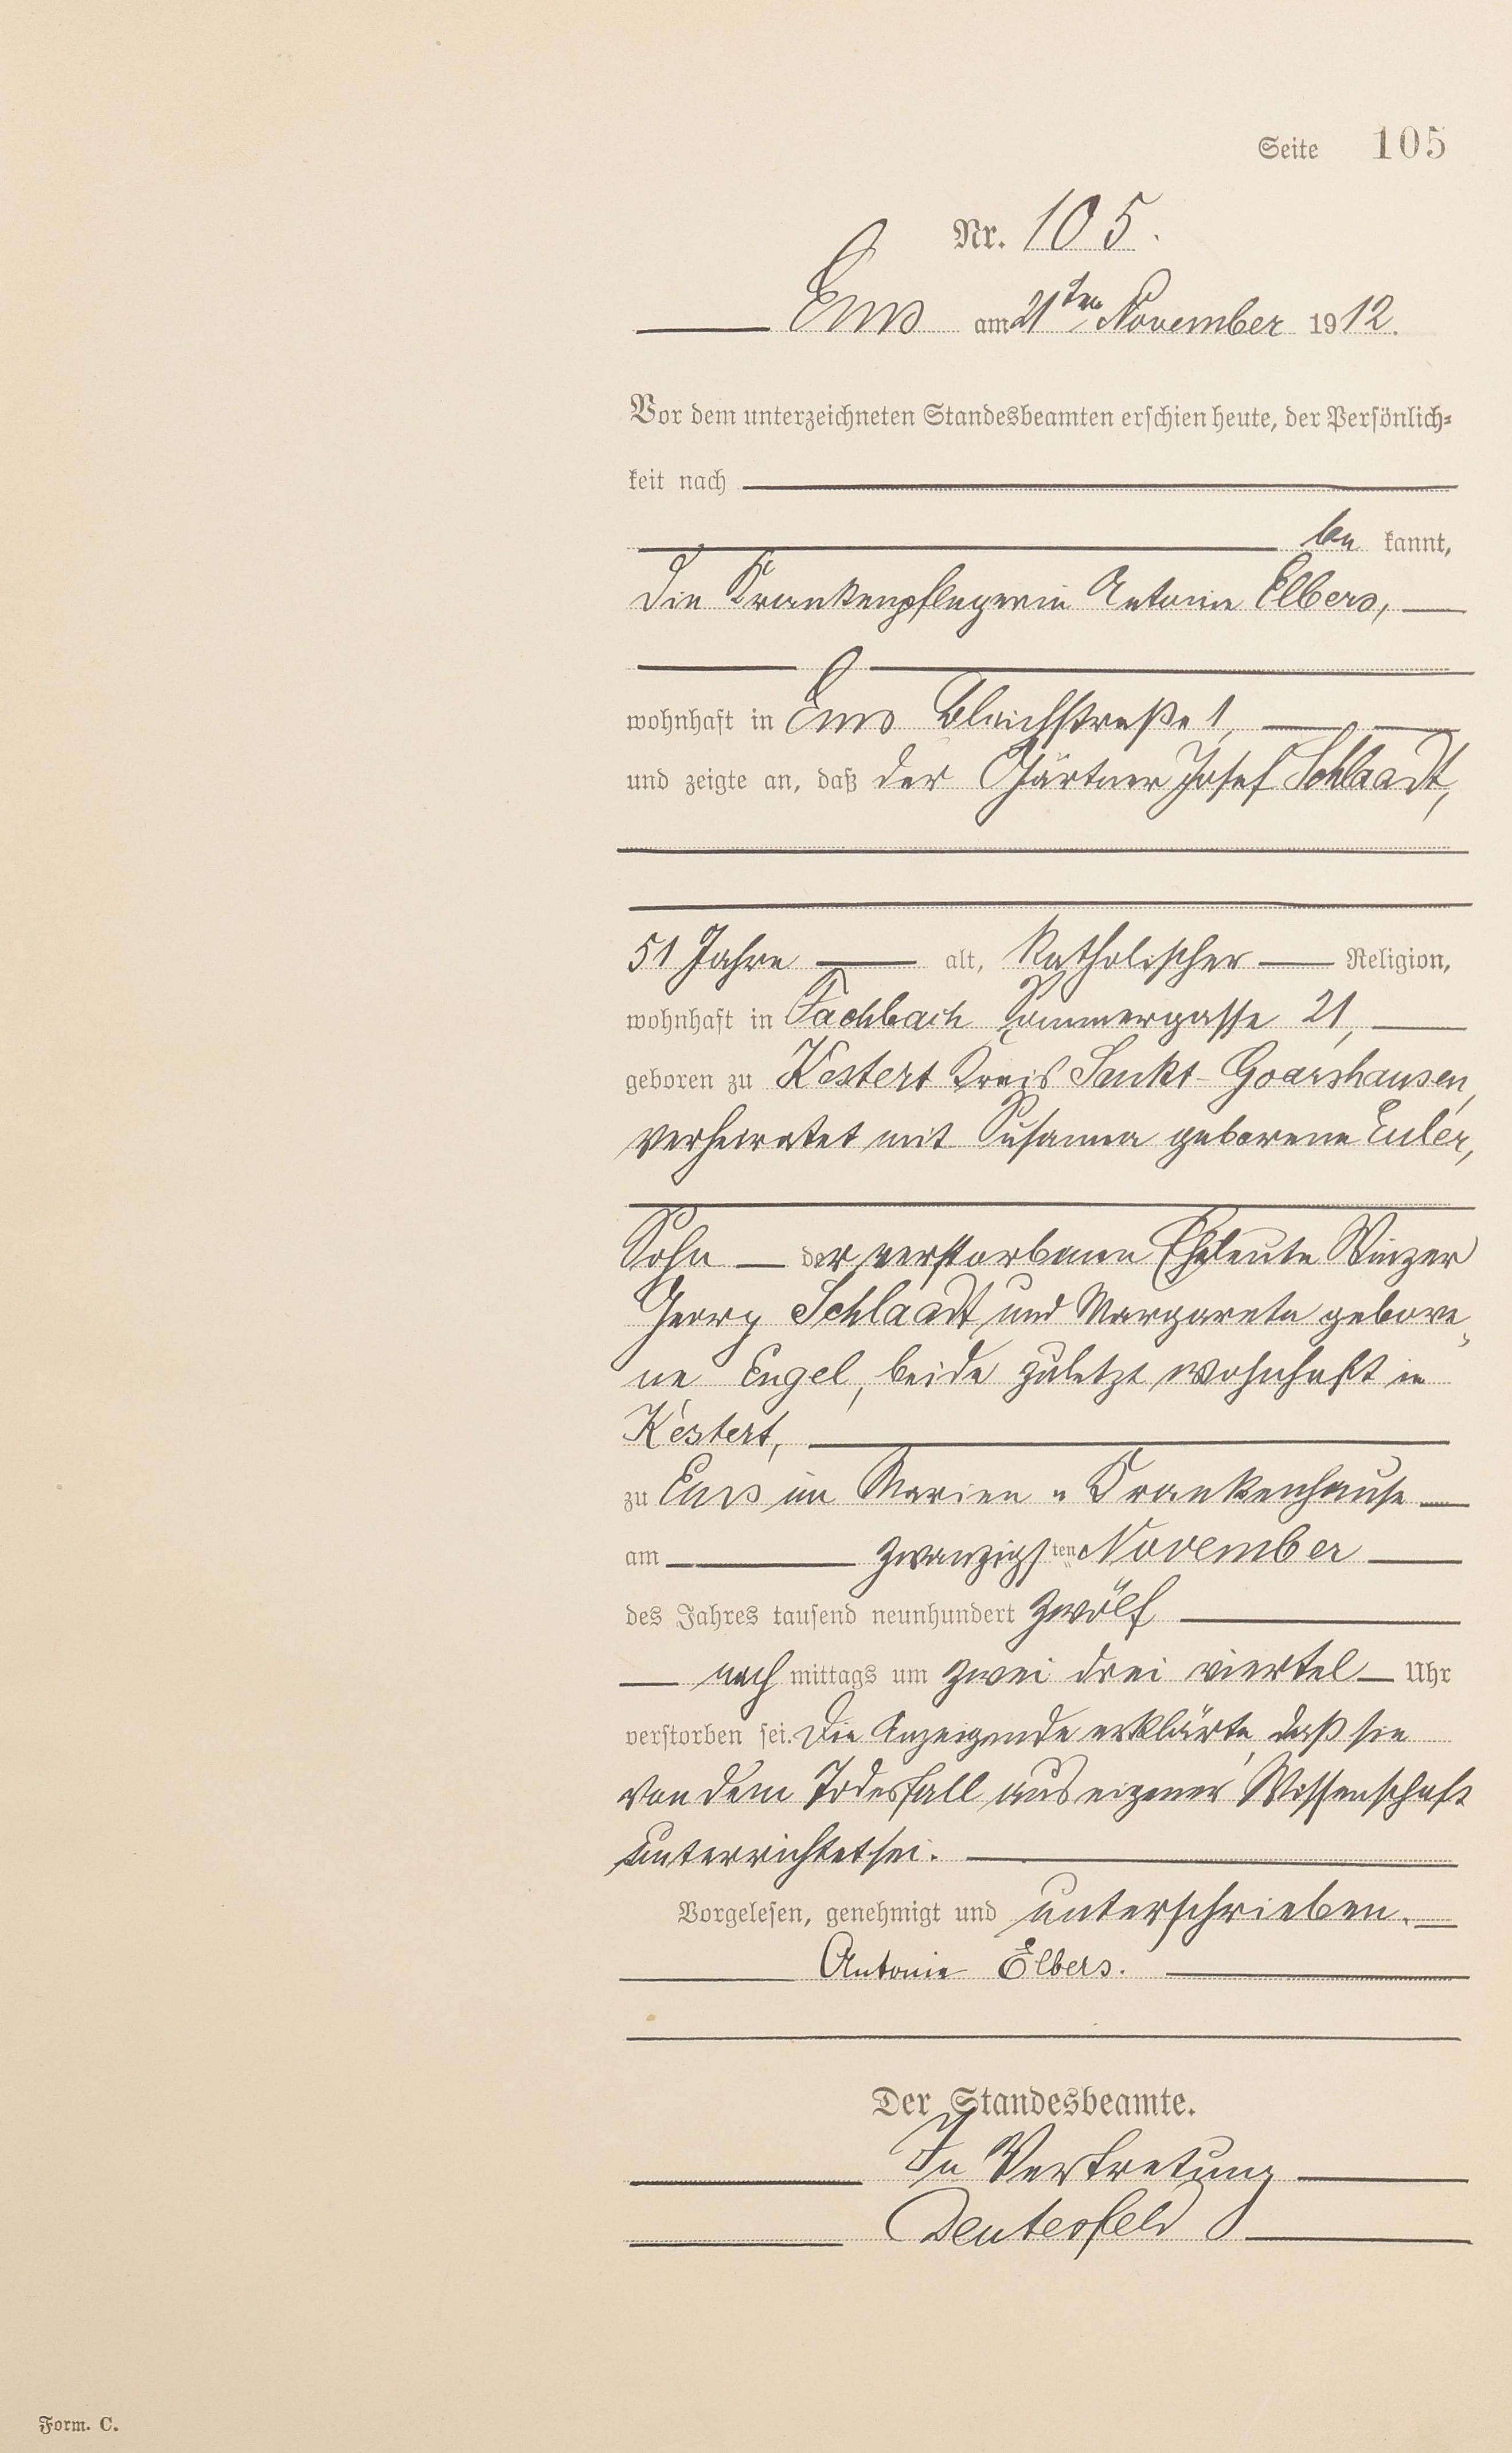 Seite 105
Nr. 105.
Ems am 21ten November 1912.
Vor dem unterzeichneten Standesbeamten erschien heute, der Persönlich-
keit nach
be kannt,
die Krankenpflegerin Antonie Elbers,
wohnhaft in Ems Bleichstraße 1,
und zeigte an, daß der Gärtner Josef Schlaadt,
51 Jahre alt, katholischer Religion,
wohnhaft in Fachbach Sommergasse 21,
geboren zu Kestert Kreis Sankt-Goarshausen,
verheiratet mit Susanna geborene Euler,
Sohn der verstorbenen Eheleute Winzer
Georg Schlaadt und Margareta gebore-
ne Engel, beide zuletzt wohnhaft in
Kestert,
zu Ems im Marien-Krankenhause
am zwanzigsten November
des Jahres tausend neunhundert zwölf
nach mittags um zwei drei viertel Uhr
verstorben sei. Die Anzeigende erklärte, daß sie
von dem Todesfall aus eigener Wissenschaft
unterrichtet sei.
Vorgelesen, genehmigt und unterschrieben.
Antonie Elbers.
Der Standesbeamte.
In Vertretung
Form. C.